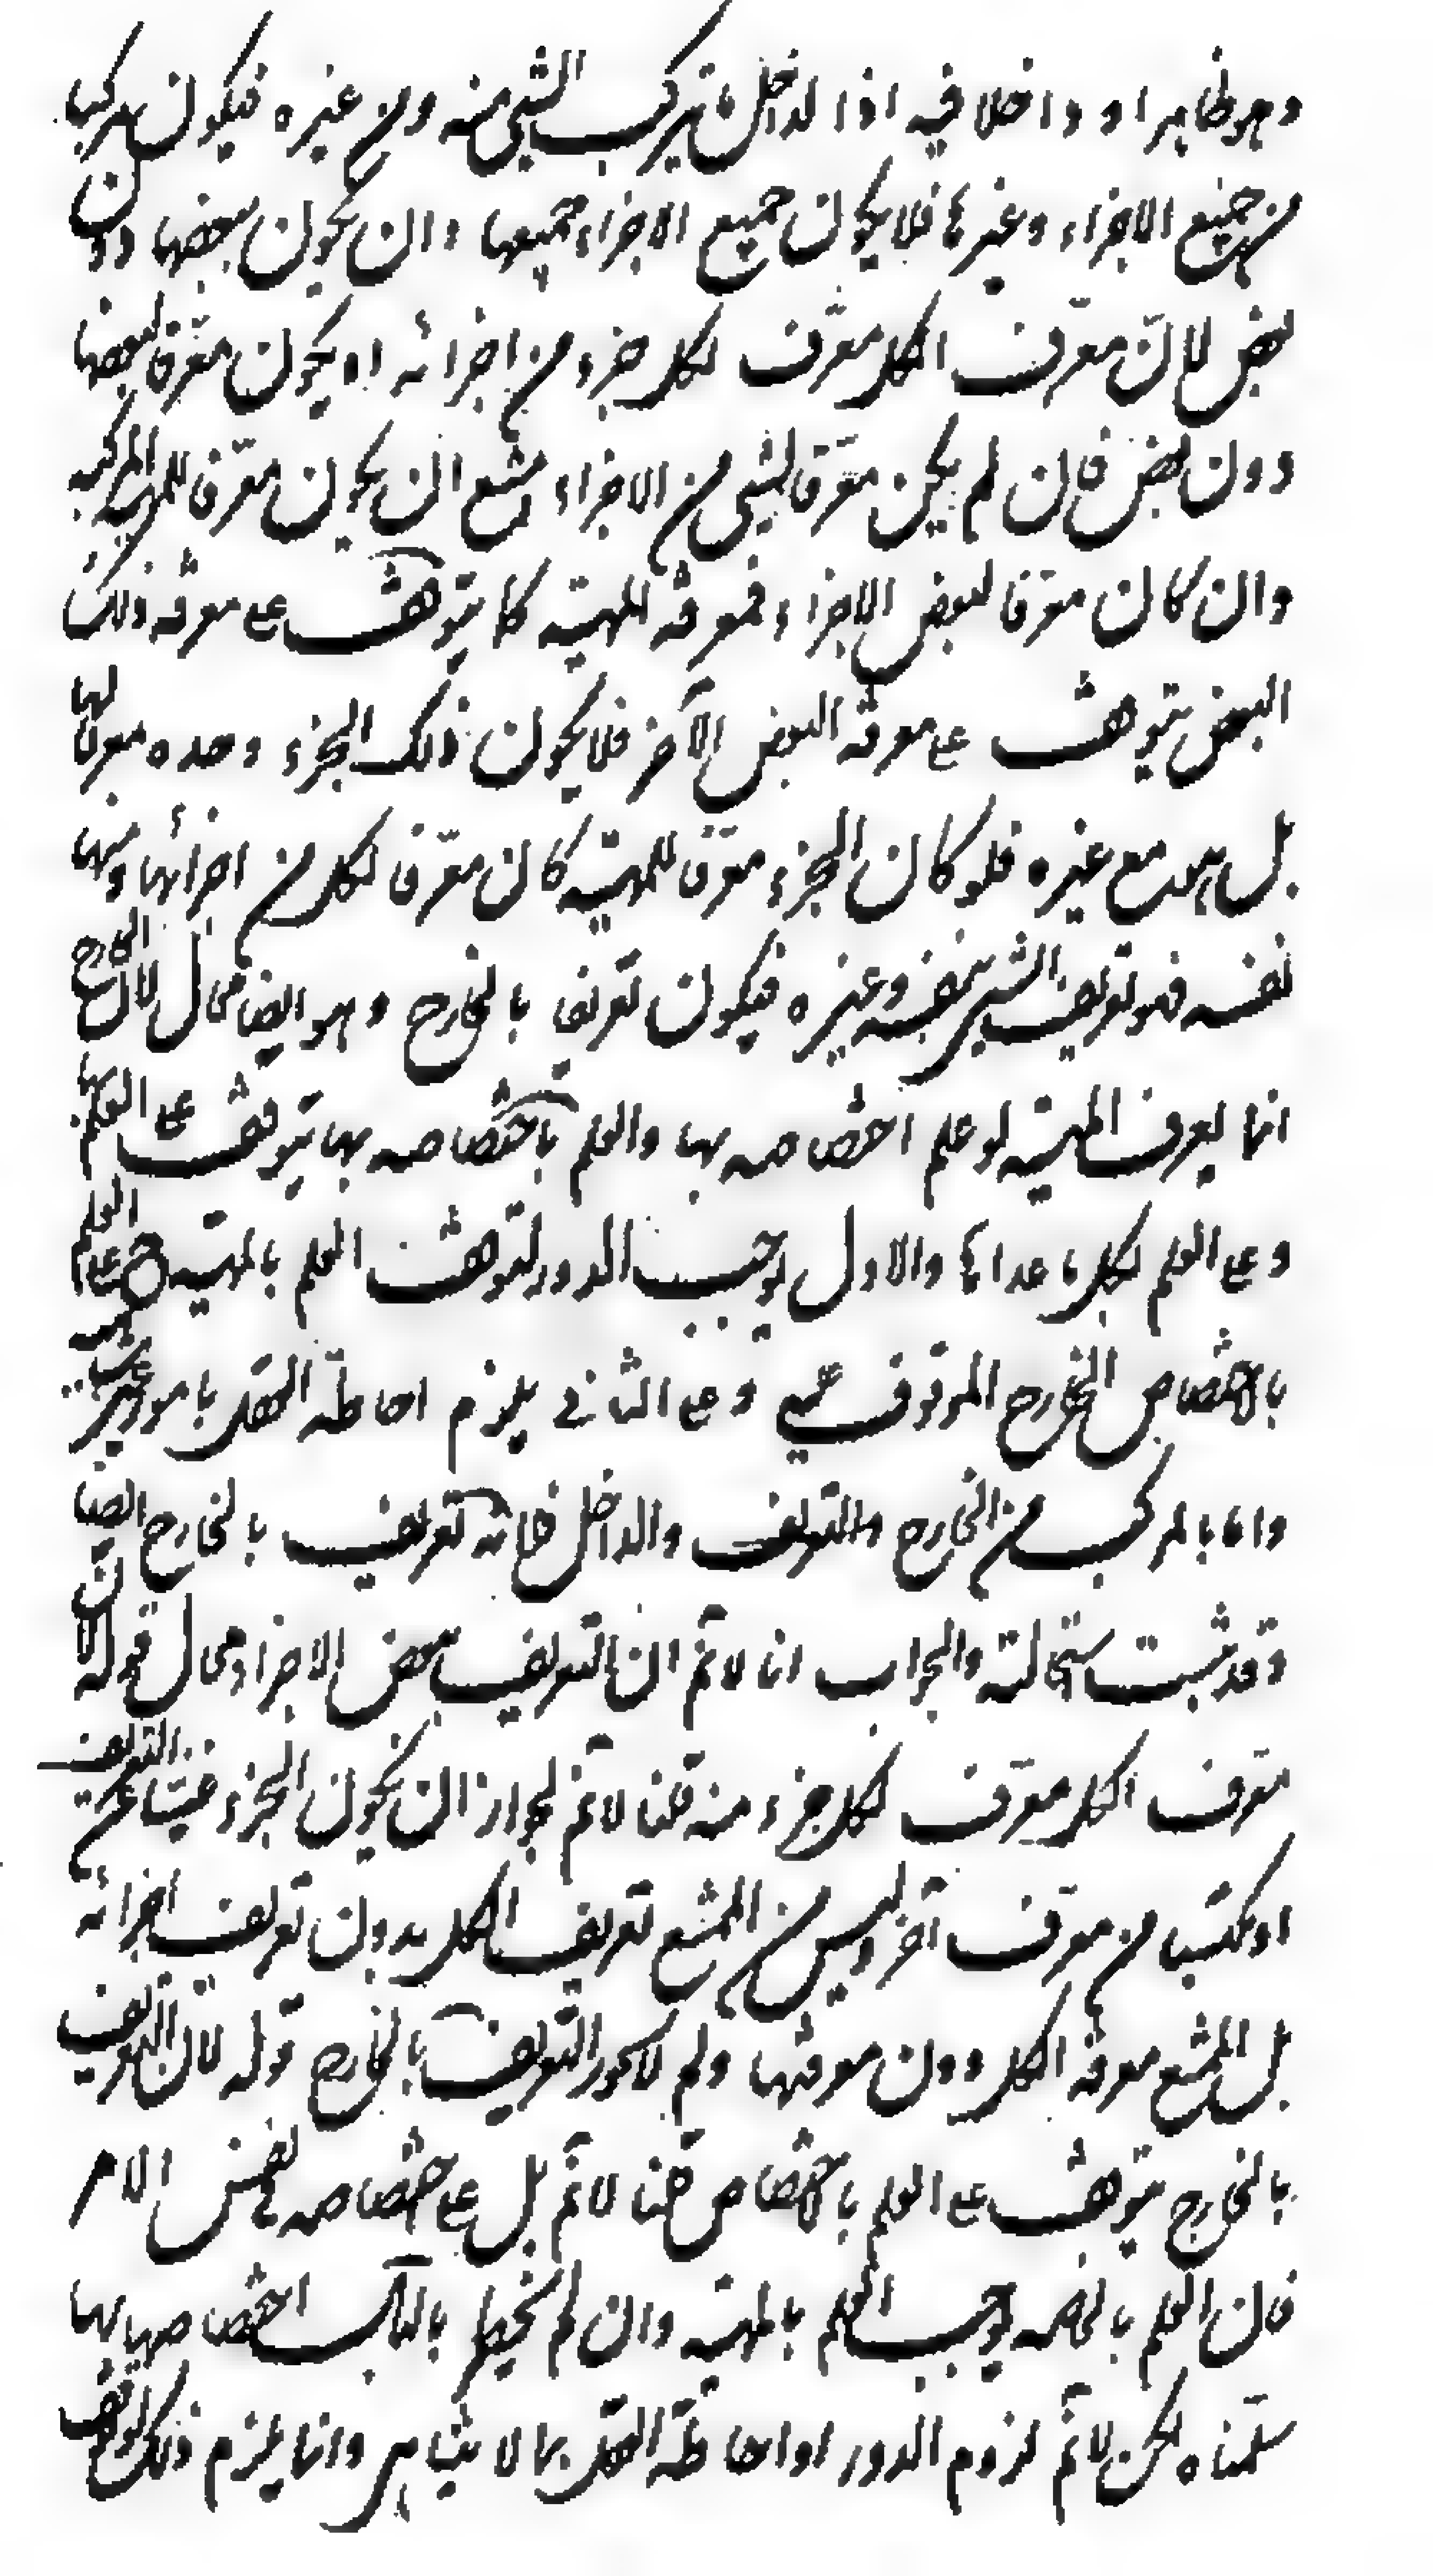 وهو ظاهر او داخلا فيه اذا الداخل ما يتركب الشيء منه ومن غيره فيكون مركبا
من جميع الاجزاء وغيرها فلا يكون جميع الاجزاء جميعها وان يكون بعضها دون
بعض لان معرف الكل معرف لكل جزء من اجزائه او يكون معرفا لبعضها
دون بعض فان لم يكن معرفا لشيء من الاجزاء امتنع ان يكون معرفا للمهية المركبة
وان كان معرفا لبعض الاجزاء فمعرفة المهية كما يتوقف على معرفة ذلك
البعض يتوقف على معرفة البعض الآخر فلا يكون ذلك الجزء وحده معرفا لها
بل هو مع غيره فلو كان الجزء معرفا للمهية كان معرفا لكل من اجزائها ومنها
نفسه فهو تعريف الشيء بنفسه وغيره فيكون تعريفا بالخارج وهو ايضا محال لان الخارج
انما يعرف المهية لو علم اختصاصه بها والعلم باختصاصه بها يتوقف على العلم بها
وعلى العلم بكل ما عداها والاول يوجب الدور لتوقف العلم بالمهية ح على العلم
باختصاص الخارج الموقوف عليه وعلى الثاني يلزم احاطة العقل بامور غير
واما بالمركب من الخارج والتعريف والداخل فانه تعريف بالخارج ايضا
وقد ثبت استحالته والجواب انا لا نم ان التعريف ببعض الاجزاء محال قوله لان
معرف الكل معرف لكل جزء منه قلنا لا نم لجواز ان يكون الجزء غنيا عن التعريف
او مكتسبا من معرف آخر وليس من الممتنع تعريف الكل بدون تعريف اجزائه
بل الممتنع معرفة الكل دون معرفتها ولم لا يجوز التعريف بالخارج قوله لان التعريف
بالخارج يتوقف على العلم بالاختصاص قلنا لا نم بل على اختصاصه في نفس الامر
فان العلم بالخاصة يوجب العلم بالمهية وان لم يخطر بالبال اختصاصها بها
سلمناه لكن لا نم لزوم الدور او احاطة العقل بما لا يتناهى وانما يلزم ذلك لو توقف